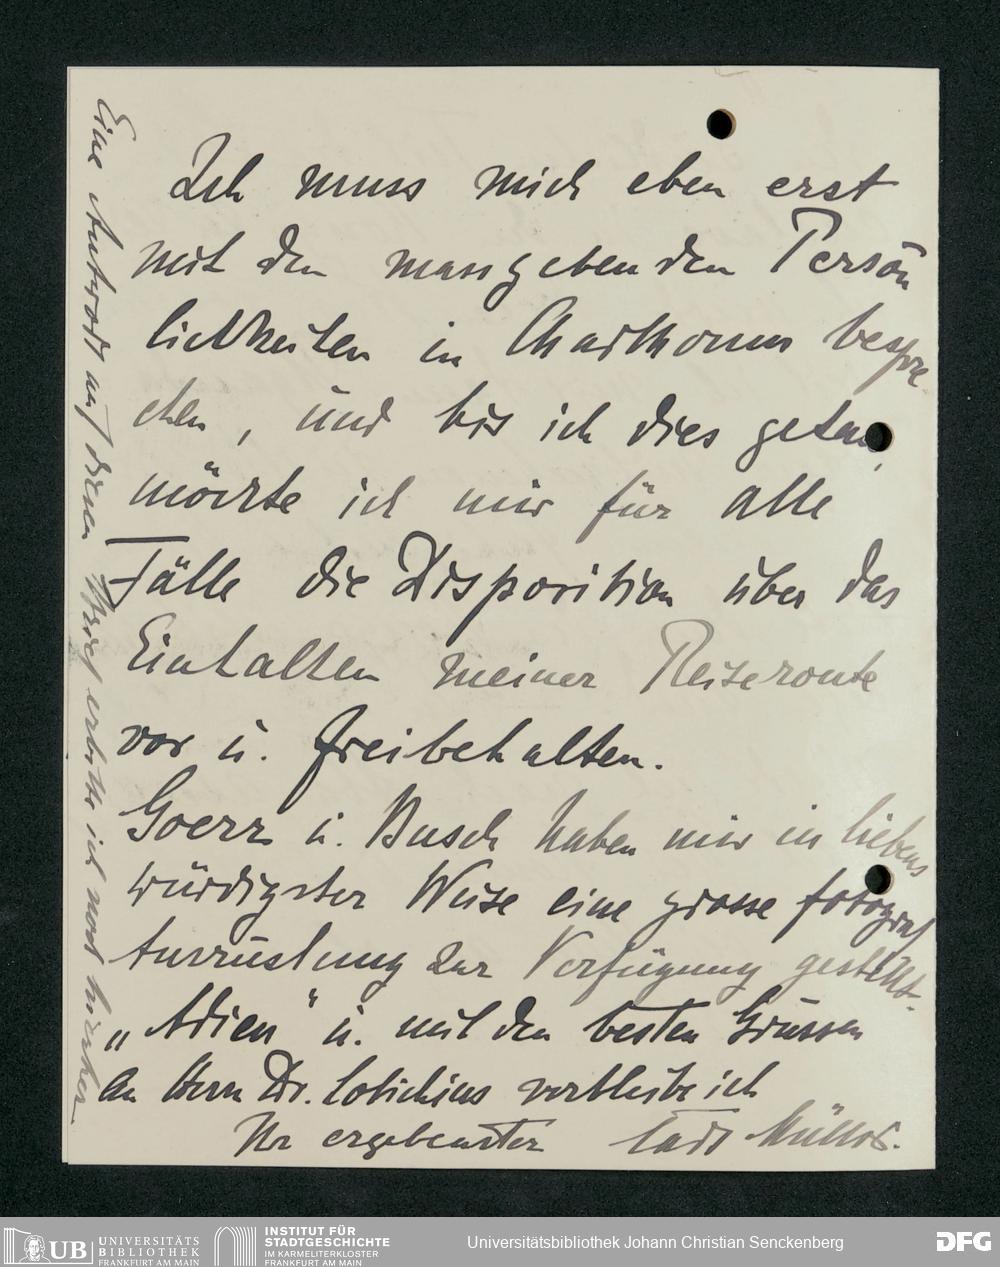 Ich muss mich eben erst
mit den massgebenden Persön
lichkeiten in Charthoum bespre
chen, und bis ich dies getan,
möchte ich mir für alle
Fälle die Disposition über das
Einhalten meiner Reiseroute
vor u. freibehalten.
Goerz u. Busch haben mir in liebens
würdigster Weise eine grosse fotograf
Ausrüstung zur Verfügung gestellt.
„Adieu" u. mit den besten Grüssen
an Herrn Dr. Lotichius verbleibe ich
Ihr ergebenster Carl Müller.
Eine Antwort auf diesen Brief erbitte ich noch hierher
UB UNIVERSITÄTS
BIBLIOTHEK
FRANKFURT AM MAIN
INSTITUT FÜR
STADTGESCHICHTE
IM KARMELITERKLOSTER
FRANKFURT AM MAIN
Universitätsbibliothek Johann Christian Senckenberg
DFG